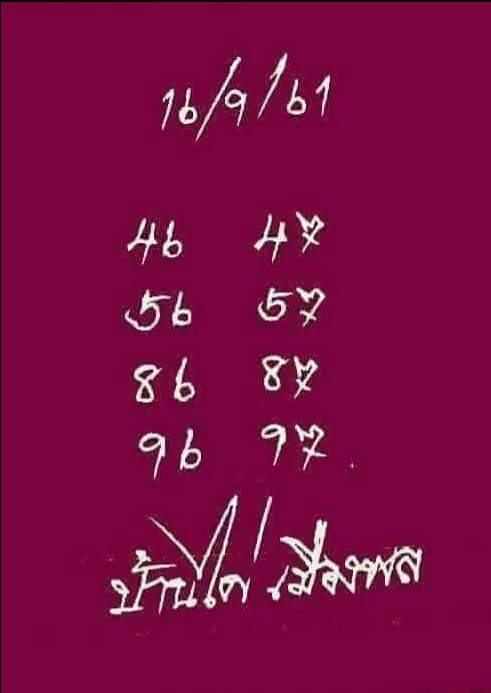 16/9/61
46 47
56 57
86 87
96 97
บ้านไผ่ เมืองพล